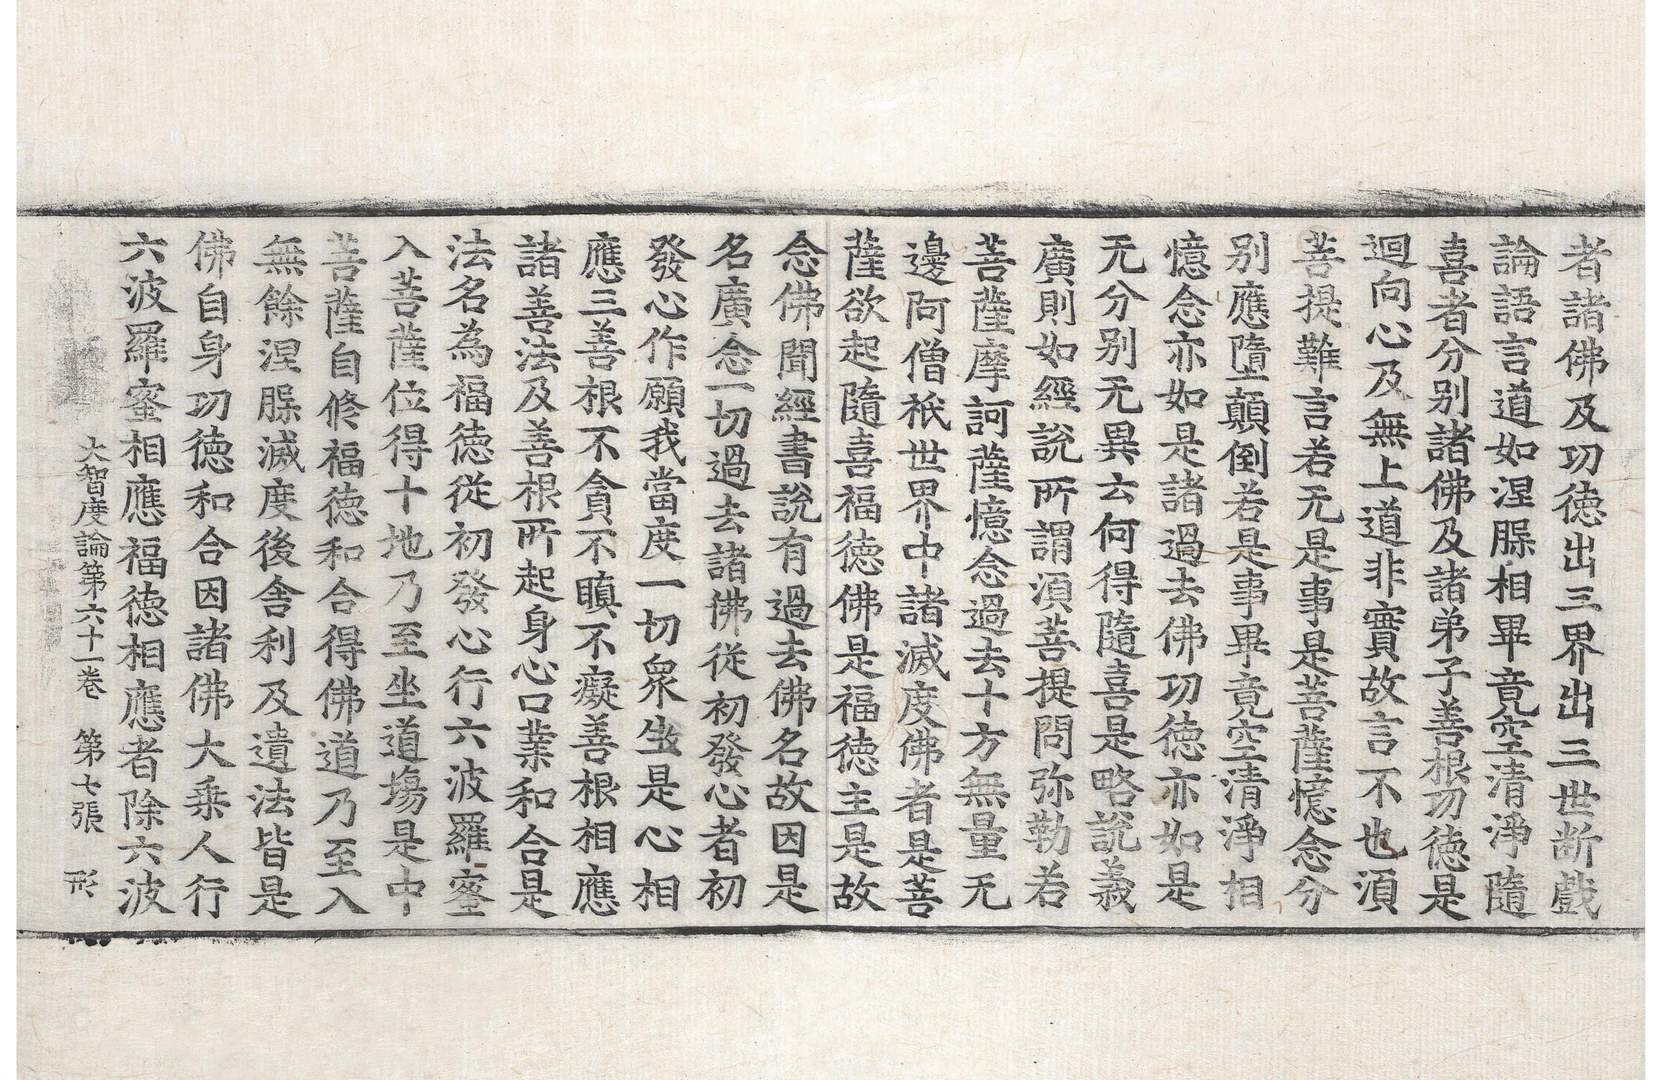 者諸佛及功德出三界出三世断戲
論語言道如涅槃相畢竟空清淨隨
喜者分别諸佛及諸弟子善根功德是
迴向心及無上道非實故言不也湏
菩提難言若无是事是菩薩憶念分
别應墮顛倒若是事畢竟空清淨相
憶念亦如是諸過去佛功德亦如是
无分别无異云何得隨喜是略說義
廣則如經說所謂湏菩提問弥勒若
菩薩摩訶薩憶念過去十方無量无
邊阿僧祇世界中諸滅度佛者是菩
薩欲起隨喜福德佛是福德主是故
念佛聞經書說有過去佛名故因是
名廣念一切過去諸佛從初發心者初
發心作願我當度一切衆生是心相
應三善根不貪不瞋不癡善根相應
諸善法及善根所起身心口業和合是
法名為福德從初發心行六波羅蜜
入菩薩位得十地乃至坐道場是中
菩薩自修福德和合得佛道乃至入
無餘涅槃滅度後舍利及遺法皆是
佛自身功德和合因諸佛大乘人行
六波羅蜜相應福德相應者除六波
大智度論第六十一卷　第七張　形